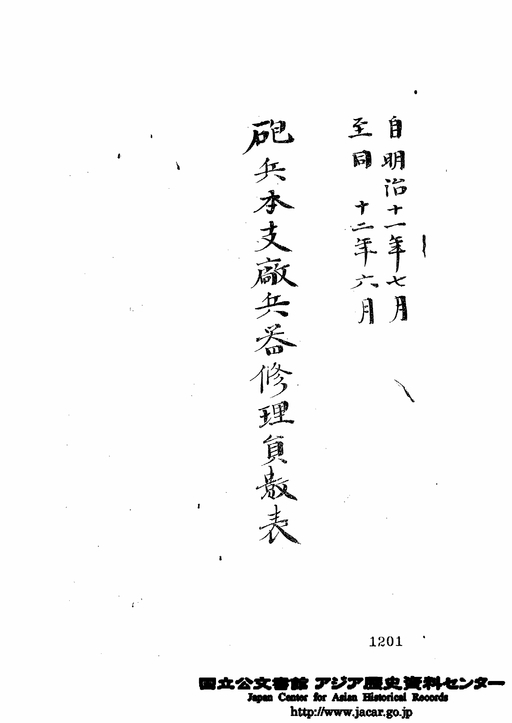 自明治十一年七月
至同十二年六月
砲兵本支廠兵器修理員数表
1201
国立公文書館 アジア歴史資料センター
Japan Center for Asian Historical Records
http://www.jacar.go.jp